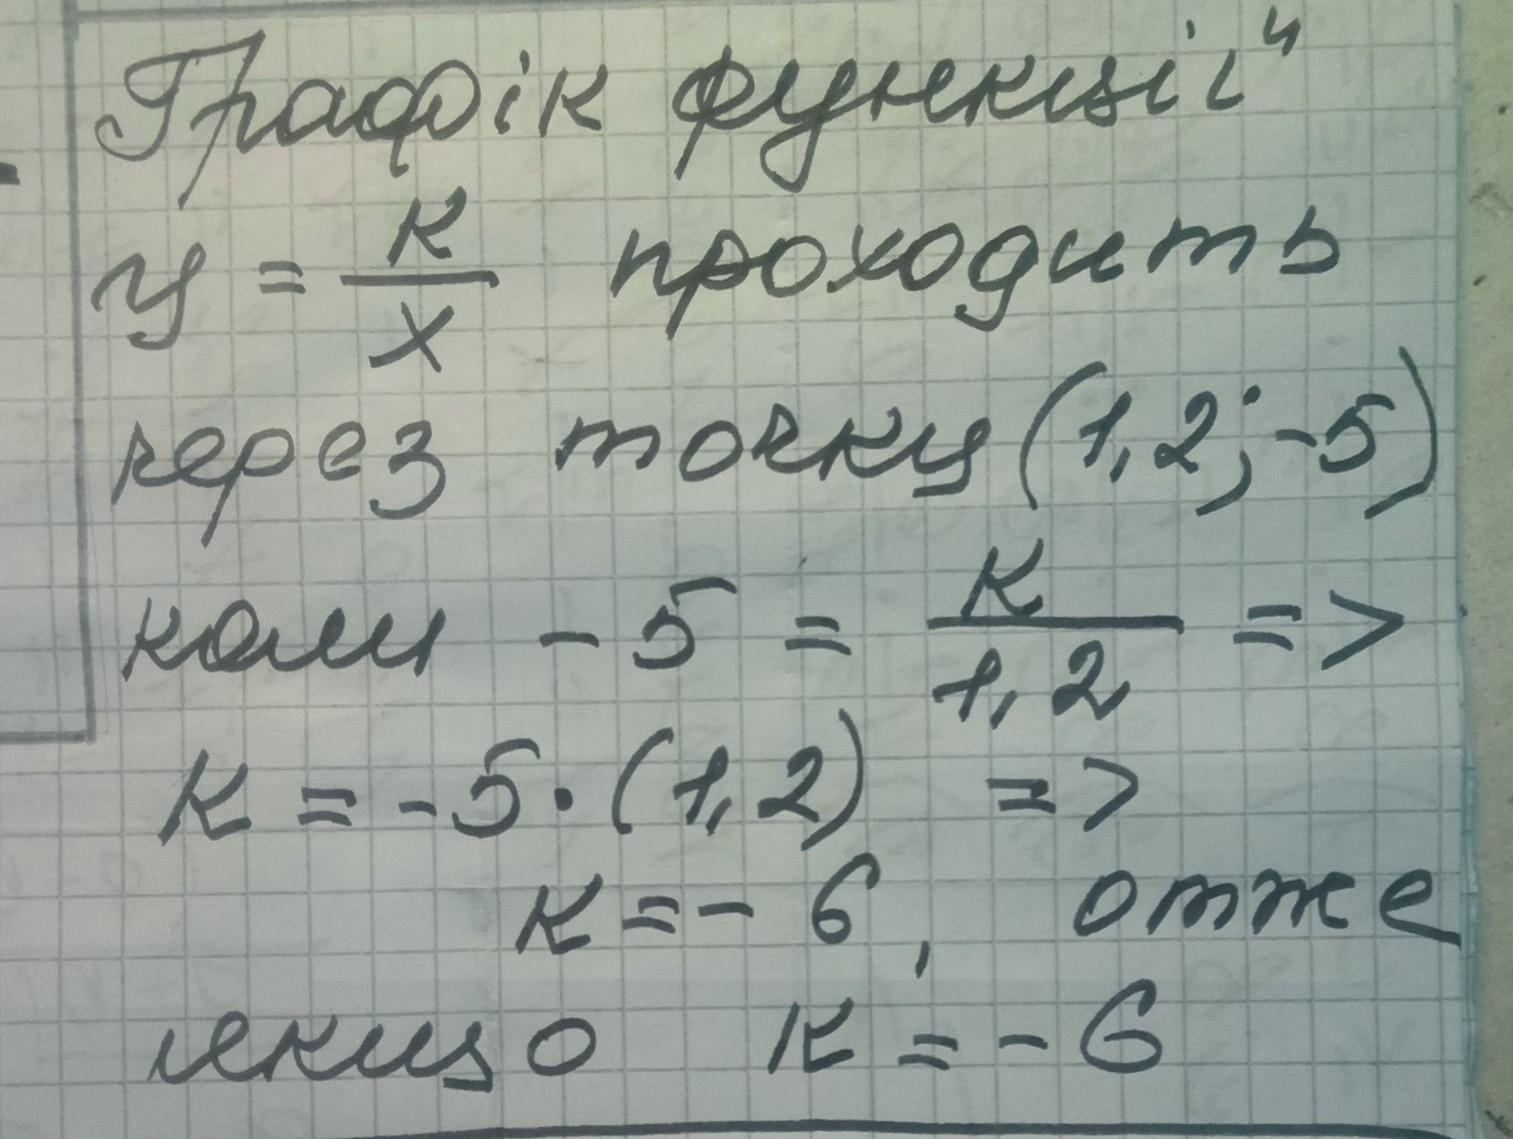 Графік функції"
y = к/x проходить
через точку (1,2; -5)
коли - 5 = к/1,2 =>
к = -5 · (1,2) =>
к = - 6, отже
якщо к = - 6